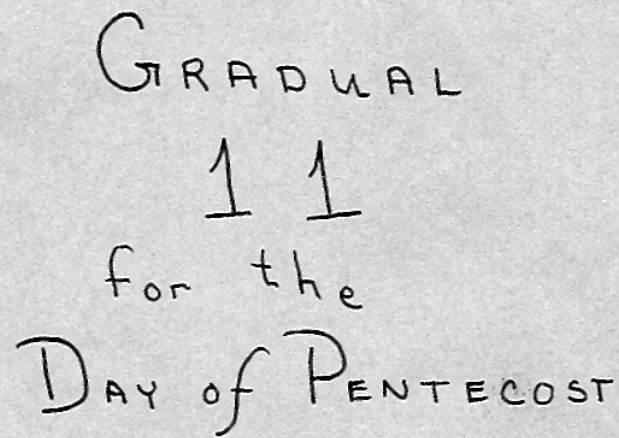 GRADUAL
11
for the
DAY of PENTECOST